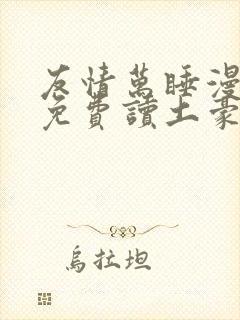 友情萬睡漫
免費讀土豪
烏拉坦